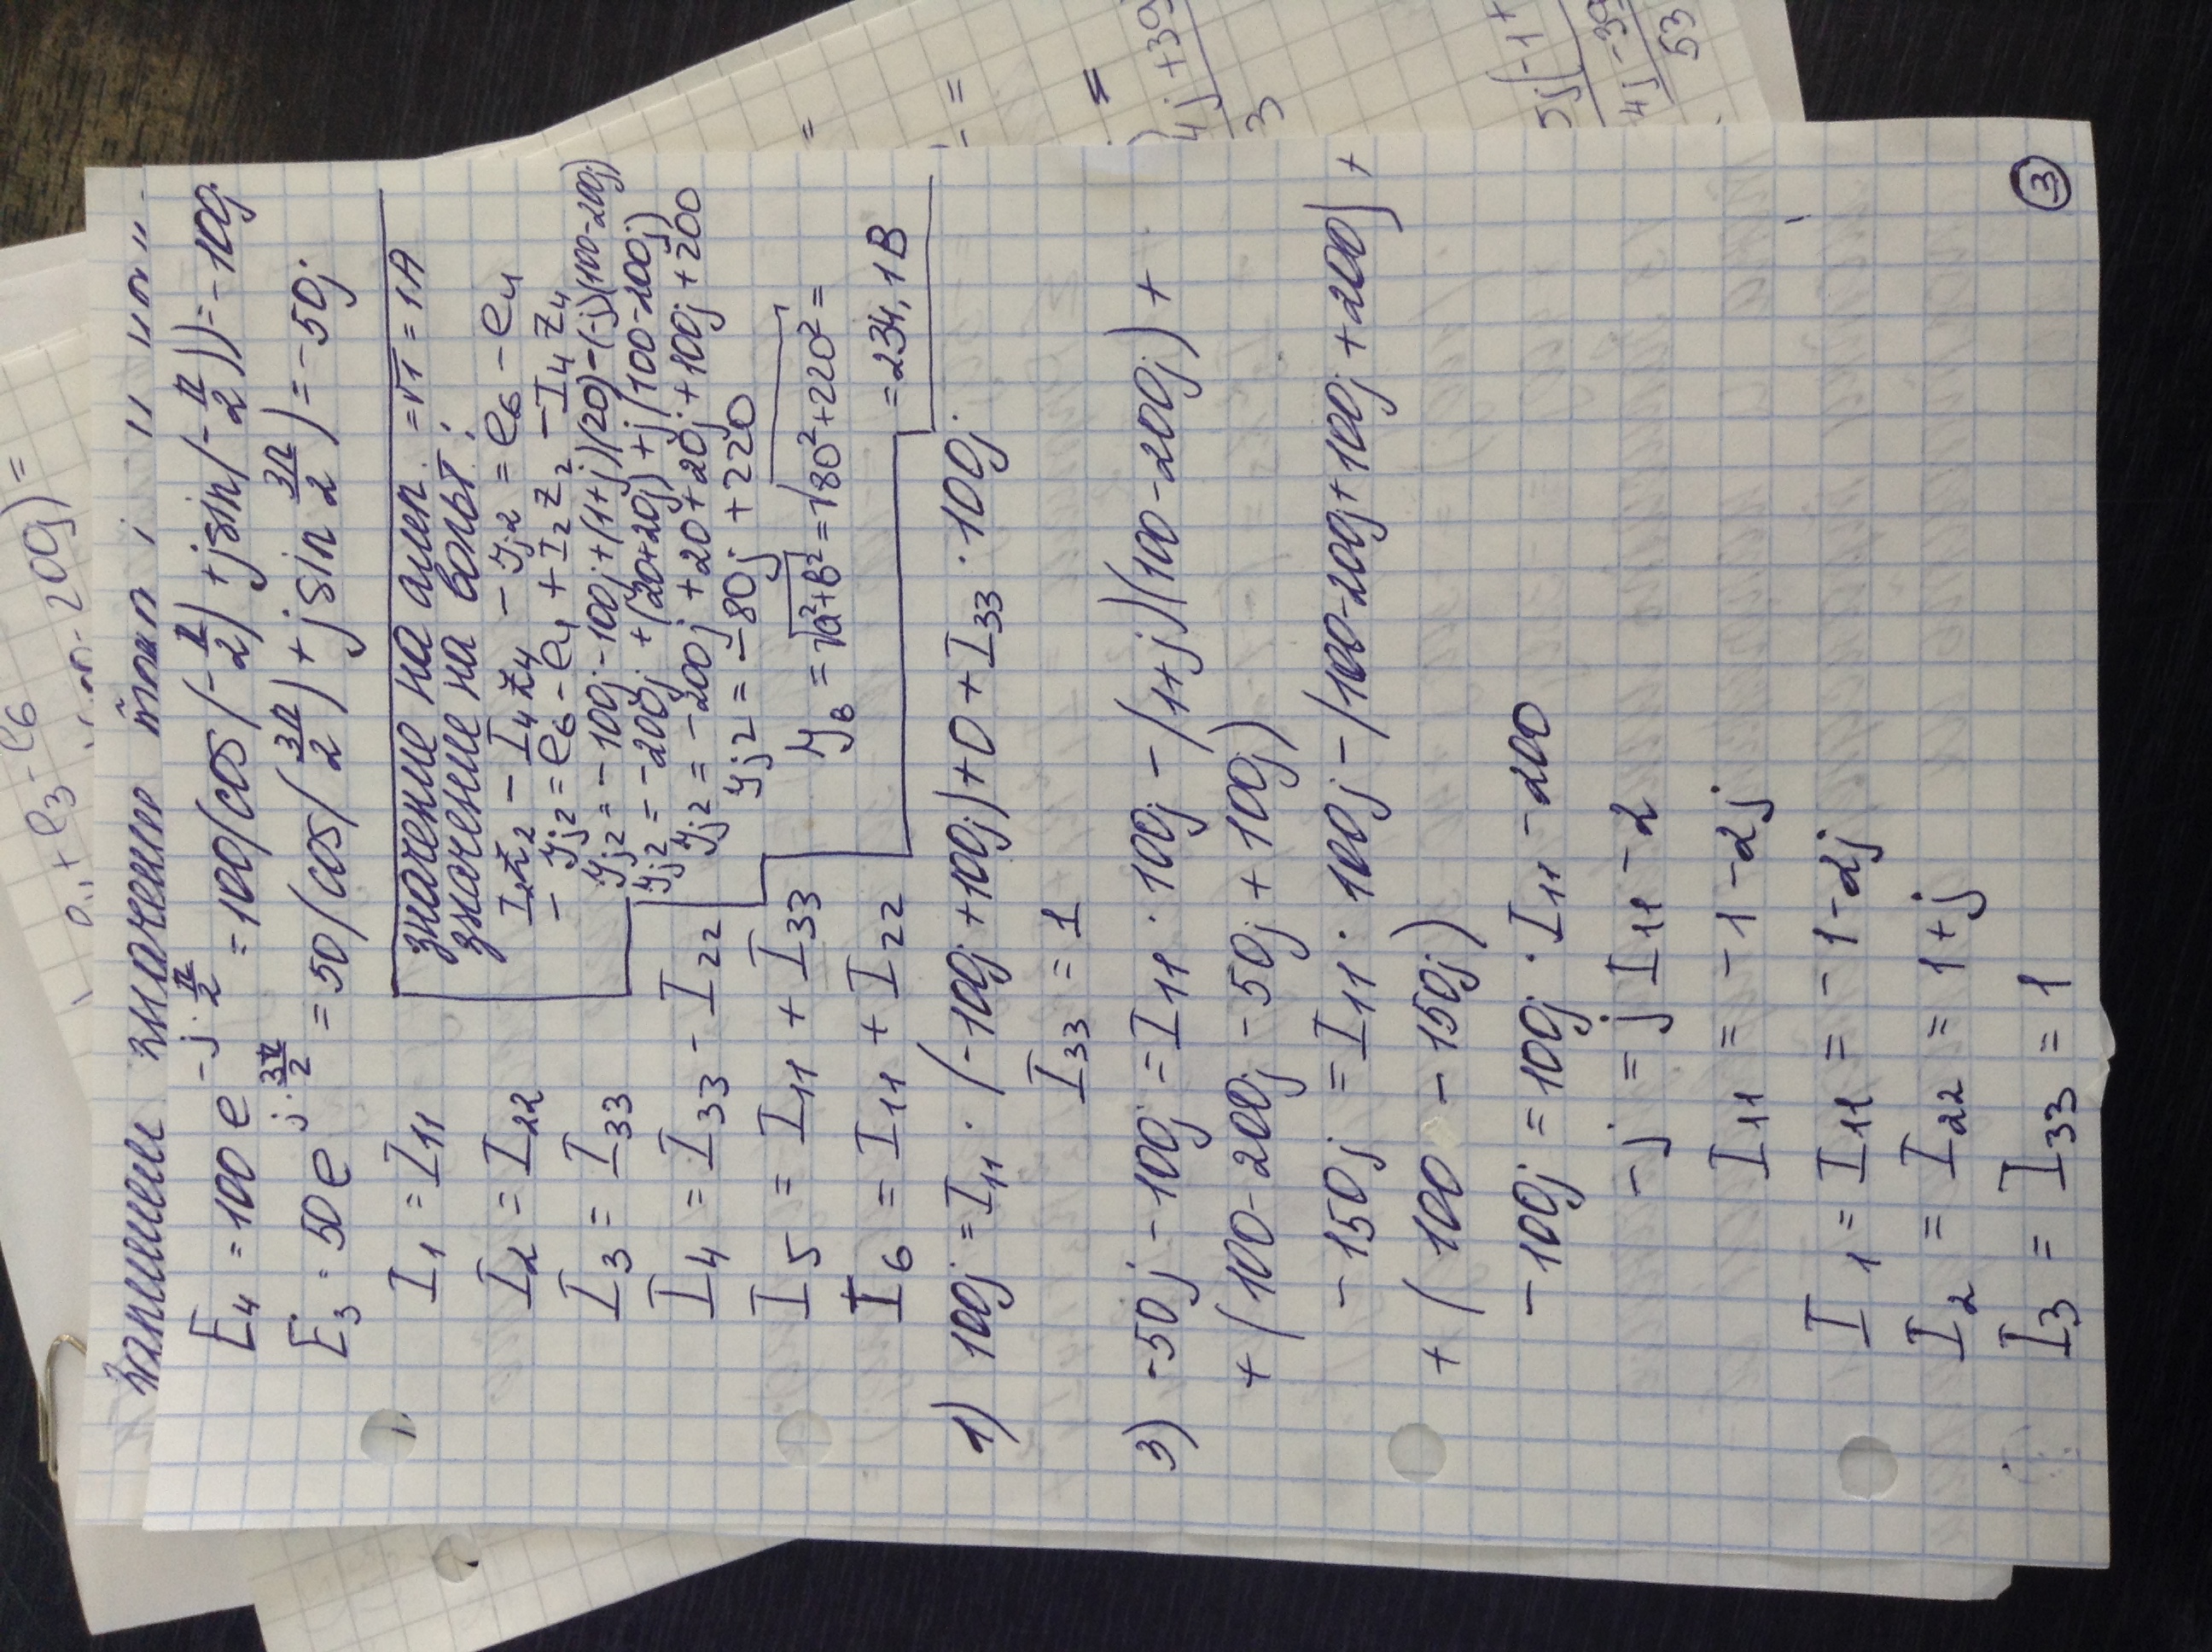 напишем значение
E₄ = 100 e^(-j·π/2) = 100(cos(-π/2) + jsin(-π/2)) = -100j
E₃ = 50 e^(j·3π/2) = 50(cos(3π/2) + j sin 3π/2) = -50j
I₁ = I₁₁
I₂ = I₂₂
I₃ = I₃₃
I₄ = I₃₃ - I₂₂
I₅ = I₁₁ + I₃₃
I₆ = I₁₁ + I₂₂
значение на амп. = √1 = 1A
значение на вольт:
I₂z₂ - I₄z₄ - Yj₂ = e₆ - e₄
- Yj₂ = e₆ - e₄ + I₂z₂ - I₄z₄
Yj₂ = -100j - 100j + (1+j)(20) - (-j)(100-200j)
Yj₂ = -200j + (20+20j) + j(100-200j)
Yj₂ = -200j + 20 + 20j + 100j + 200
Yj₂ = -80j + 220
Yв = √a²+в² = √80²+220² =
= 234,1 В
1) 100j = I₁₁·(-100j + 100j) + 0 + I₃₃·100j
I₃₃ = 1
3) -50j - 100j = I₁₁·100j - (1+j)(100-200j) +
+ (100 - 200j - 50j + 100j)
-150j = I₁₁·100j - (100-200j+100j+200) +
+ (100 - 150j)
-100j = 100j·I₁₁ - 200
-j = jI₁₁ - 2
I₁₁ = -1 - 2j
I₁ = I₁₁ = -1-2j
I₂ = I₂₂ = 1+j
I₃ = I₃₃ = 1
3
+ e₃ - e₆
- 200j) =
4j + 39
3
5j(-1+
4j - 39
53